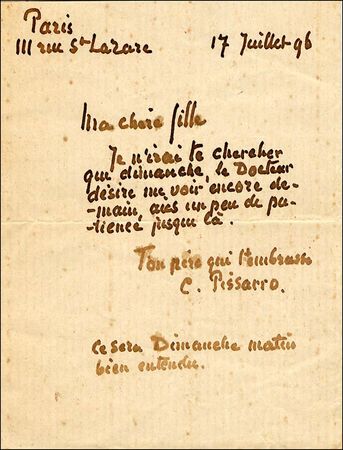 Paris
111 rue St Lazare 17 Juillet 96
Ma chere fille
Je n'irai te chercher
que dimanche, le Docteur
désire me voir encore de-
-main, aies un peu de pa-
tience jusque là.
Ton père qui t'embrasse
C. Pissarro.
ce sera Dimanche matin
bien entendu.